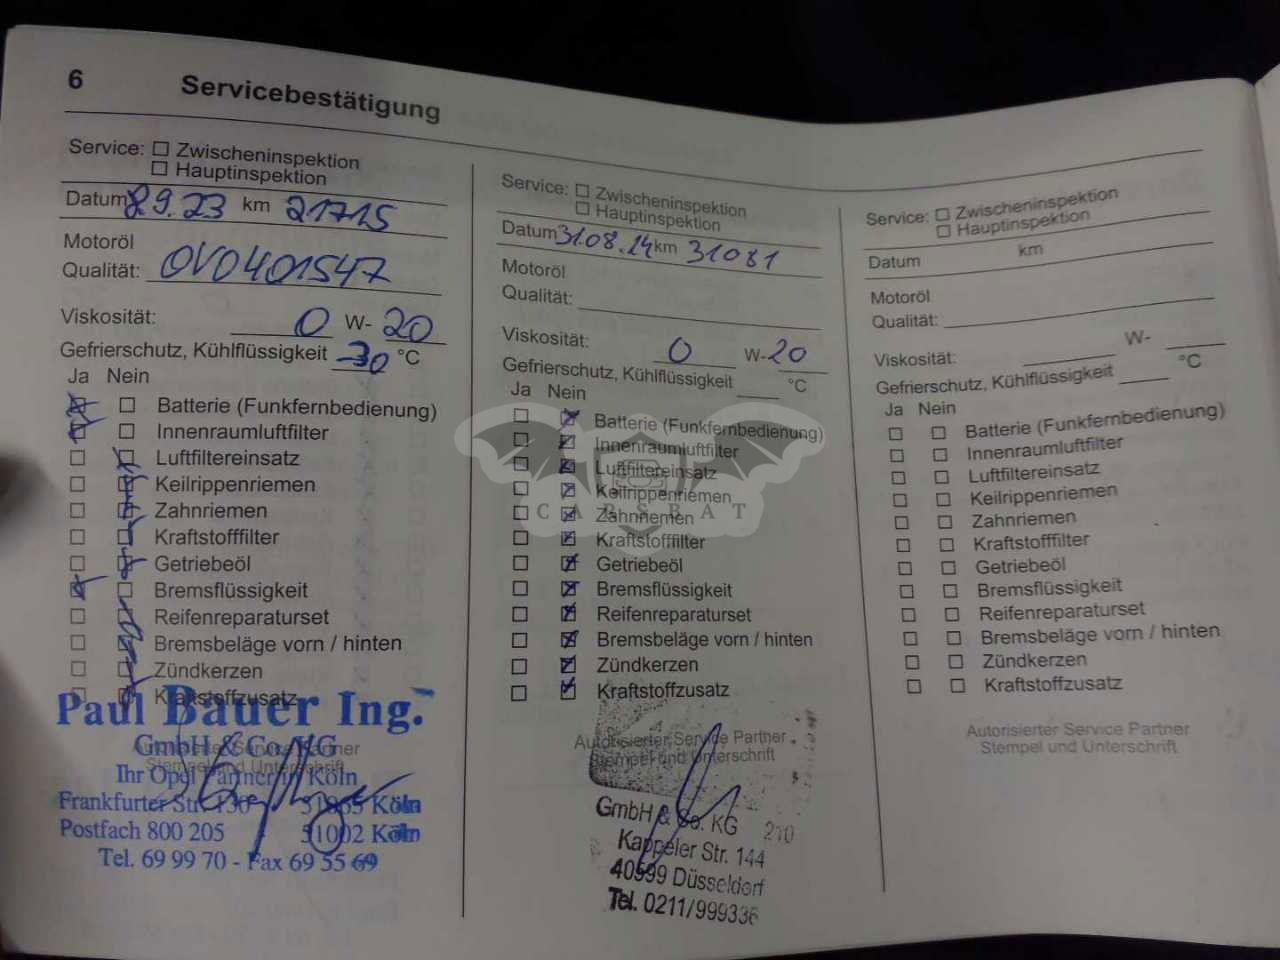 6 Servicebestätigung
Service: Zwischeninspektion
Hauptinspektion
Datum 8.9.23 km 21715
Motoröl
Qualität: OVO401547
Viskosität: 0 W- 20
Gefrierschutz, Kühlflüssigkeit -30 °C
Ja Nein
Batterie (Funkfernbedienung)
Innenraumluftfilter
Luftfiltereinsatz
Keilrippenriemen
Zahnriemen
Kraftstofffilter
Getriebeöl
Bremsflüssigkeit
Reifenreparaturset
Bremsbeläge vorn / hinten
Zündkerzen
Kraftstoffzusatz
Paul Bauer Ing.
GmbH & Co. KG
Ihr Opel Partner in Köln
Frankfurter Str. 130 51065 Köln
Postfach 800 205 51002 Köln
Tel. 69 99 70 - Fax 69 55 69
Service: Zwischeninspektion
Hauptinspektion
Datum 31.08.24 km 31081
Motoröl
Qualität:
Viskosität: 0 W-20
Gefrierschutz, Kühlflüssigkeit °C
Ja Nein
Batterie (Funkfernbedienung)
Innenraumluftfilter
Luftfiltereinsatz
Keilrippenriemen
Zahnriemen
Kraftstofffilter
Getriebeöl
Bremsflüssigkeit
Reifenreparaturset
Bremsbeläge vorn / hinten
Zündkerzen
Kraftstoffzusatz
Autorisierter Service Partner
Stempel und Unterschrift
GmbH & Co. KG 210
Kappeler Str. 144
40599 Düsseldorf
Tel. 0211/999336
Service: Zwischeninspektion
Hauptinspektion
Datum km
Motoröl
Qualität:
Viskosität: W-
Gefrierschutz, Kühlflüssigkeit °C
Ja Nein
Batterie (Funkfernbedienung)
Innenraumluftfilter
Luftfiltereinsatz
Keilrippenriemen
Zahnriemen
Kraftstofffilter
Getriebeöl
Bremsflüssigkeit
Reifenreparaturset
Bremsbeläge vorn / hinten
Zündkerzen
Kraftstoffzusatz
Autorisierter Service Partner
Stempel und Unterschrift
CARSBAT